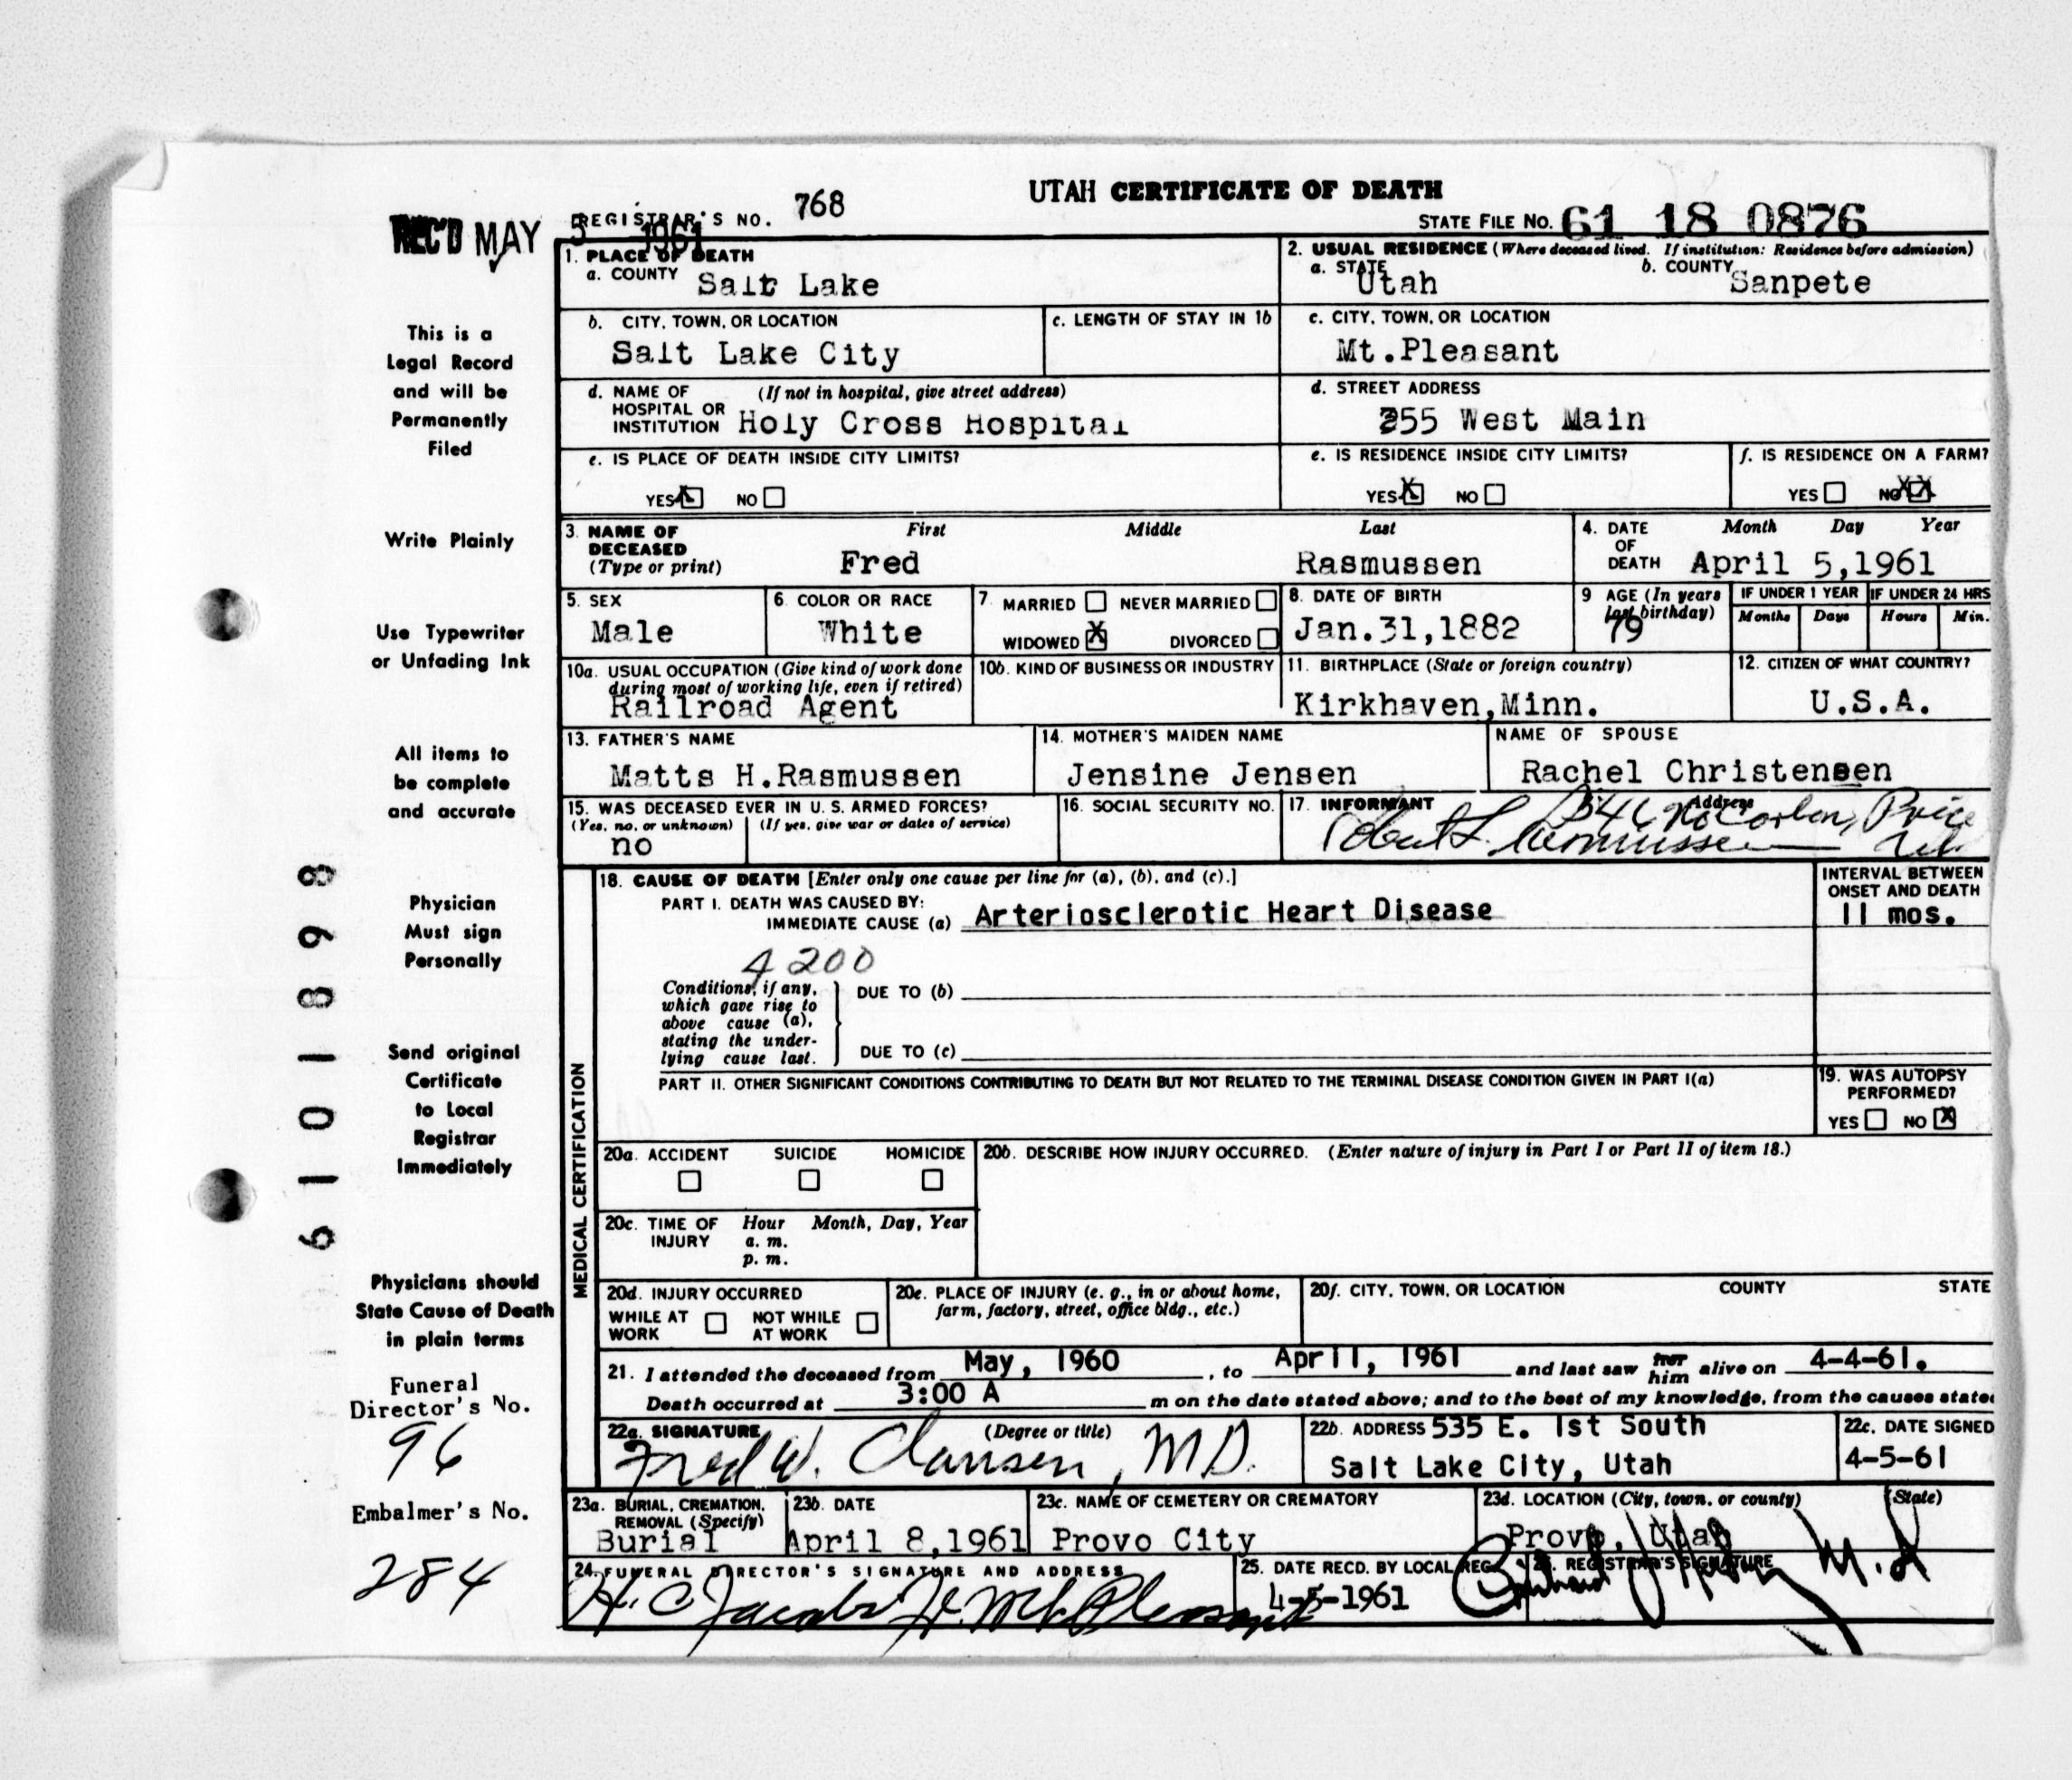 UTAH CERTIFICATE OF DEATH
REC'D MAY 5 1961
REGISTRAR'S NO. 768
STATE FILE NO. 61 18 0876
This is a
Legal Record
and will be
Permanently
Filed
Write Plainly
Use Typewriter
or Unfading Ink
All items to
be complete
and accurate
Physician
Must sign
Personally
Send original
Certificate
to Local
Registrar
Immediately
Physicians should
State Cause of Death
in plain terms
Funeral
Director's No.
96
Embalmer's No.
284
6101898
1. PLACE OF DEATH
a. COUNTY Salt Lake
2. USUAL RESIDENCE (Where deceased lived. If institution: Residence before admission)
a. STATE Utah b. COUNTY Sanpete
b. CITY, TOWN, OR LOCATION
Salt Lake City
c. LENGTH OF STAY IN 1b
c. CITY, TOWN, OR LOCATION
Mt.Pleasant
d. NAME OF (If not in hospital, give street address)
HOSPITAL OR
INSTITUTION Holy Cross Hospital
d. STREET ADDRESS
255 West Main
e. IS PLACE OF DEATH INSIDE CITY LIMITS?
YES X NO
e. IS RESIDENCE INSIDE CITY LIMITS?
YES X NO
f. IS RESIDENCE ON A FARM?
YES NO XX
3. NAME OF First Middle Last
DECEASED
(Type or print) Fred Rasmussen
4. DATE Month Day Year
OF
DEATH April 5,1961
5. SEX
Male
6. COLOR OR RACE
White
7. MARRIED NEVER MARRIED
WIDOWED X DIVORCED
8. DATE OF BIRTH
Jan.31,1882
9 AGE (In years
last birthday)
79
IF UNDER 1 YEAR
Months Days
IF UNDER 24 HRS
Hours Min.
10a. USUAL OCCUPATION (Give kind of work done
during most of working life, even if retired)
Railroad Agent
10b. KIND OF BUSINESS OR INDUSTRY
11. BIRTHPLACE (State or foreign country)
Kirkhaven,Minn.
12. CITIZEN OF WHAT COUNTRY?
U.S.A.
13. FATHER'S NAME
Matts H.Rasmussen
14. MOTHER'S MAIDEN NAME
Jensine Jensen
NAME OF SPOUSE
Rachel Christensen
15. WAS DECEASED EVER IN U. S. ARMED FORCES?
(Yes, no, or unknown) (If yes, give war or dates of service)
no
16. SOCIAL SECURITY NO.
17. INFORMANT Address
Robert L. Rasmussen No Carbon, Price Ut.
MEDICAL CERTIFICATION
18. CAUSE OF DEATH [Enter only one cause per line for (a), (b), and (c).]
INTERVAL BETWEEN
ONSET AND DEATH
PART I. DEATH WAS CAUSED BY:
IMMEDIATE CAUSE (a) Arteriosclerotic Heart Disease 11 mos.
4200
Conditions, if any,
which gave rise to
above cause (a),
stating the under-
lying cause last.
DUE TO (b)
DUE TO (c)
PART II. OTHER SIGNIFICANT CONDITIONS CONTRIBUTING TO DEATH BUT NOT RELATED TO THE TERMINAL DISEASE CONDITION GIVEN IN PART I(a)
19. WAS AUTOPSY
PERFORMED?
YES NO X
20a. ACCIDENT SUICIDE HOMICIDE
20b. DESCRIBE HOW INJURY OCCURRED. (Enter nature of injury in Part I or Part II of item 18.)
20c. TIME OF Hour Month, Day, Year
INJURY a. m.
p. m.
20d. INJURY OCCURRED
WHILE AT NOT WHILE
WORK AT WORK
20e. PLACE OF INJURY (e. g., in or about home,
farm, factory, street, office bldg., etc.)
20f. CITY, TOWN, OR LOCATION COUNTY STATE
21. I attended the deceased from May, 1960, to April, 1961 and last saw her him alive on 4-4-61.
Death occurred at 3:00 A m on the date stated above; and to the best of my knowledge, from the causes stated
22a. SIGNATURE (Degree or title)
Fred W. Clausen, M.D.
22b. ADDRESS 535 E. 1st South
Salt Lake City, Utah
22c. DATE SIGNED
4-5-61
23a. BURIAL, CREMATION,
REMOVAL (Specify)
Burial
23b. DATE
April 8,1961
23c. NAME OF CEMETERY OR CREMATORY
Provo City
23d. LOCATION (City, town, or county) (State)
Provo, Utah
24. FUNERAL DIRECTOR'S SIGNATURE AND ADDRESS
H. C. Jacobs Jr. Mt Pleasant
25. DATE RECD. BY LOCAL REG.
4-5-1961
26. REGISTRAR'S SIGNATURE
M.D